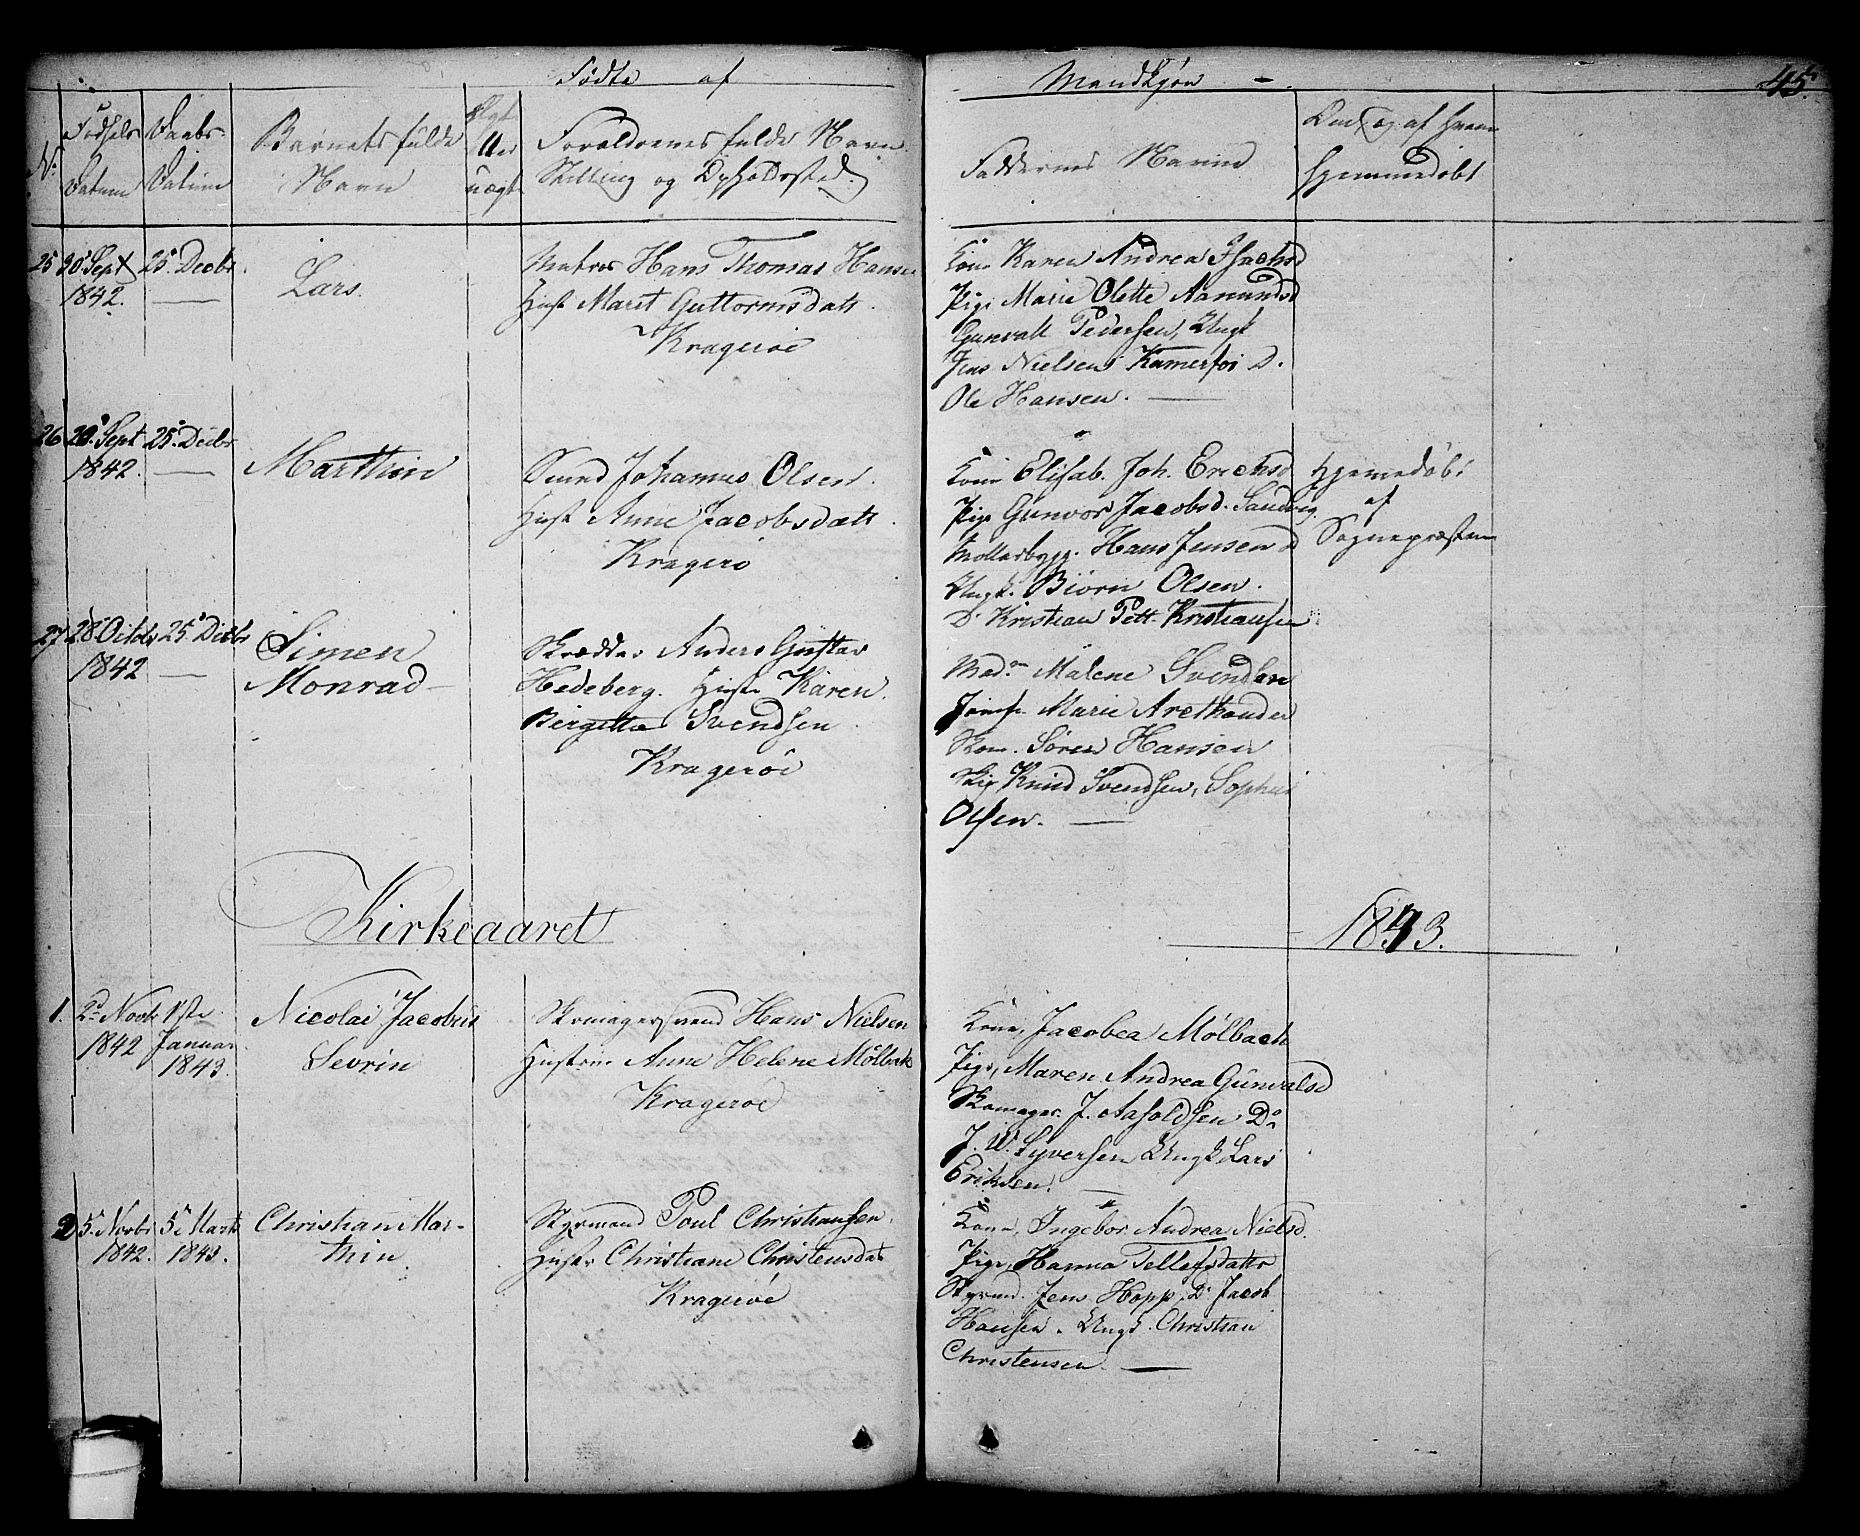 Fødte af Mandkjøn 45.
No. Fødsels Datum
Daabs Datum
Barnets fulde Navn
Ægte eller uægte
Forældrenes fulde Navn
Stilling og Opholdsted.
Faddernes Navne
og af hvem
hjemmedøbt
25 Sept 1842. 25 Decbr
Lars.
Matros Hans Thomas Hansen
Hust Marit Guttormsdatt.
Kragerøe
Kone Karen Andrea Isachsd
Pige Marie Olette Aamundsd
Gunvall Pedersen, Ungk
Jens Nielsen
Ole Hansen.
26 20 Sept 1842. 25 Decbr
Marthin
Johannes Olsen.
Hust Anne Jacobsdatt.
Kragerö
Kone Elisab. Joh. Erichsd
Pige Gunvor Jacobsd. Sandvig.
Møllerbygg. Hans Jensen
Ungk. Biörn Olsen.
Do Kristian Pett. Kristiansen
Hjemedöbt
af
Sognepræsten
27 28 Octobr 1842 25 Decbr
Simen
Monrad
Skrædder Anders Gustav
Hedeberg. Hust Karen
Birgitte Svendsen
Kragerøe
Madm Malene Svendsen
Jomfr Marie Arethander
Skom. Søren Hansen
Knud Svendsen, Sophus
Olsen.
Kirkeaaret 1843.
1. 2 Novbr 1842 1ste Januar 1843.
Nicolai Jacobus
Sevrin
Skomagersvend Hans Nielsen
Hustrue Anne Helene Mølbak
Kragerøe
Kone, Jacobea Mölbach
Pige, Maren Andrea Gunvalsd
Skomager. J. Aasoldsen, Do
J. W. Syversen Ungk Lars
Eriksen.
2 5 Novbr 1842. 5 Marts 1843.
Christian Mar-
thin.
Styrmand Poul Christiansen,
Hustr Christiane Christensdat
Kragerøe
Kone, Ingebor Andrea Nielsd.
Pige, Hanna Tellefsdatter
Styrmd. Jens Hopp, Do Jacob
Hansen. Ungk. Christian
Christensen.